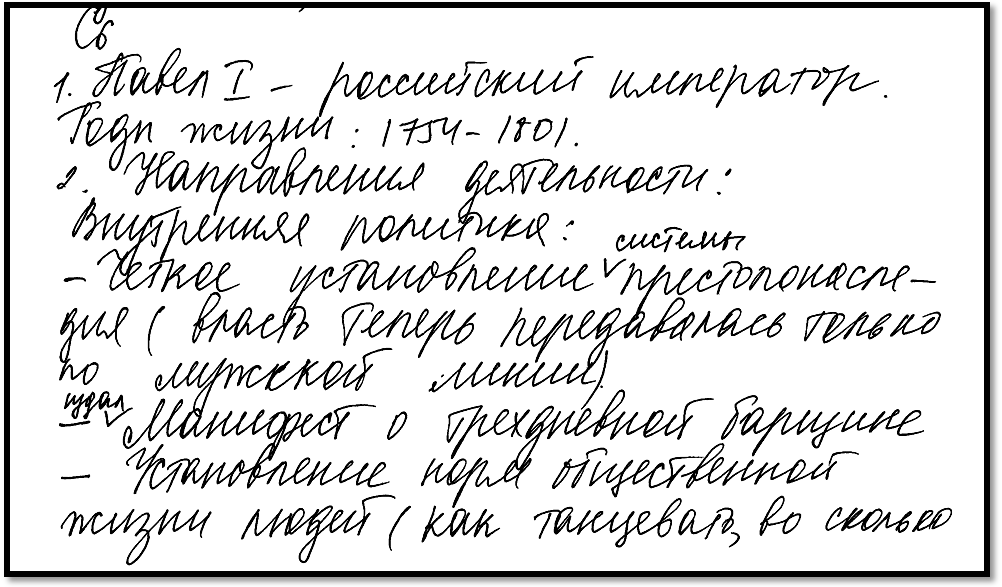 С6
1. Павел I – российский император.
Годы жизни: 1754–1801.
2. Направления деятельности:
Внутренняя политика:
– Четкое установление системы престолонасле–
дия (власть теперь передавалась только
по мужской линии)
– издал Манифест о трехдневной барщине
– Установление норм общественной
жизни людей (как танцевать, во сколько